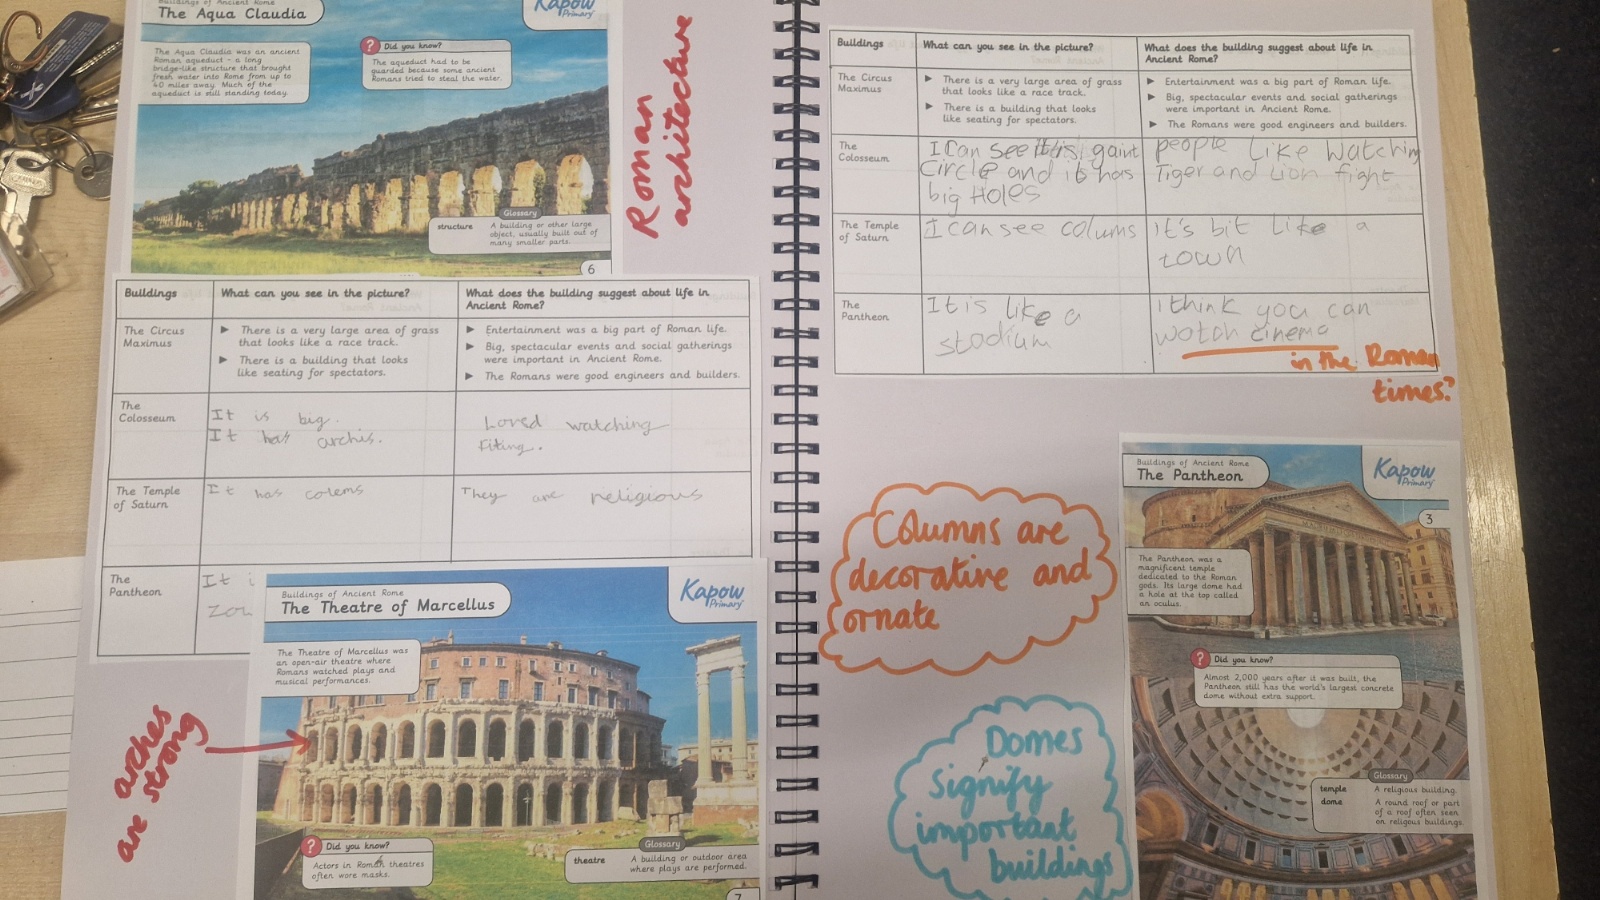 Buildings of Ancient Rome
The Aqua Claudia
Kapow
Primary
The Aqua Claudia was an ancient
Roman aqueduct - a long
bridge-like structure that brought
fresh water into Rome from up to
40 miles away. Much of the
aqueduct is still standing today.
? Did you know?
The aqueduct had to be
guarded because some ancient
Romans tried to steal the water.
Glossary
structure A building or other large
object, usually built out of
many smaller parts.
6
Roman
architecture
Buildings What can you see in the picture? What does the building suggest about life in
Ancient Rome?
The Circus
Maximus
► There is a very large area of grass
that looks like a race track.
► There is a building that looks
like seating for spectators.
► Entertainment was a big part of Roman life.
► Big, spectacular events and social gatherings
were important in Ancient Rome.
► The Romans were good engineers and builders.
The
Colosseum
It is big.
It has archis.
Loved watching
fiting.
The Temple
of Saturn
It has colems
They are religious
The
Pantheon
It
Buildings of Ancient Rome
The Theatre of Marcellus
Kapow
Primary
The Theatre of Marcellus was
an open-air theatre where
Romans watched plays and
musical performances.
arches
are strong
? Did you know?
Actors in Roman theatres
often wore masks.
Glossary
theatre A building or outdoor area
where plays are performed.
7
Buildings What can you see in the picture? What does the building suggest about life in
Ancient Rome?
The Circus
Maximus
► There is a very large area of grass
that looks like a race track.
► There is a building that looks
like seating for spectators.
► Entertainment was a big part of Roman life.
► Big, spectacular events and social gatherings
were important in Ancient Rome.
► The Romans were good engineers and builders.
The
Colosseum
I Can see gaint
Circle and it has
big Holes
people Like Watching
Tiger and Lion fight
The Temple
of Saturn
I can see colums
it's bit Like a
town
The
Pantheon
It is like a
stadium
I think you can
watch cinema
in the Roman
times?
Columns are
decorative and
ornate
Domes
signify
important
buildings
Buildings of Ancient Rome
The Pantheon
Kapow
Primary
3
The Pantheon was a
magnificent temple
dedicated to the Roman
gods. Its large dome had
a hole at the top called
an oculus.
? Did you know?
Almost 2,000 years after it was built, the
Pantheon still has the world's largest concrete
dome without extra support.
Glossary
temple A religious building.
dome A round roof or part
of a roof often seen
on religous buildings.